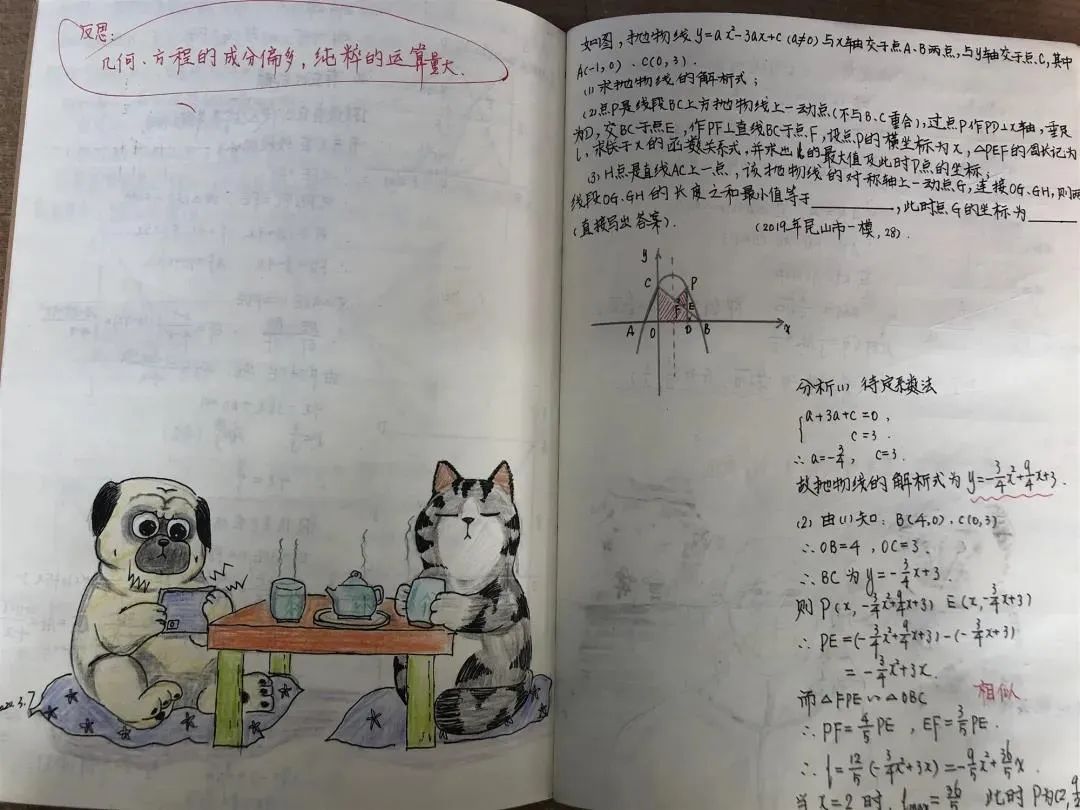 反思:
几何、方程的成分偏多,纯粹的运算量大.
2022.3.7
如图,抛物线y=ax²-3ax+c(a≠0)与x轴交于点A、B两点,与y轴交于点C,其中
A(-1,0)、C(0,3).
(1)求抛物线的解析式;
(2)点P是线段BC上方抛物线上一动点(不与B、C重合),过点P作PD⊥x轴,垂足
为D,交BC于点E,作PF⊥直线BC于点F,设点P的横坐标为x,△PEF的周长记为
l,求l关于x的函数关系式,并求出l的最大值及此时P点的坐标;
(3)H点是直线AC上一点,该抛物线的对称轴上一动点G,连接OG、GH,则两
线段OG、GH的长度之和最小值等于________,此时点G的坐标为________
(直接写出答案).
(2019年昆山市一模,28).
y
C
P
F
E
A
O
D
B
x
分析(1) 待定系数法
{a+3a+c=0,
c=3.
∴a=-3/4, c=3.
故抛物线的解析式为y=-3/4x²+9/4x+3.
(2)由(1)知:B(4,0)、C(0,3)
∴OB=4,OC=3.
∴BC为y=-3/4x+3.
则P(x,-3/4x²+9/4x+3) E(x,-3/4x+3)
∴PE=(-3/4x²+9/4x+3)-(-3/4x+3)
=-3/4x²+3x.
而△FPE∽△OBC 相似
∴PF=4/5PE,EF=3/5PE.
∴l=12/5(-3/4x²+3x)=-9/5x²+36/5x.
当x=2时,lmax=36/5 此时P为(2,